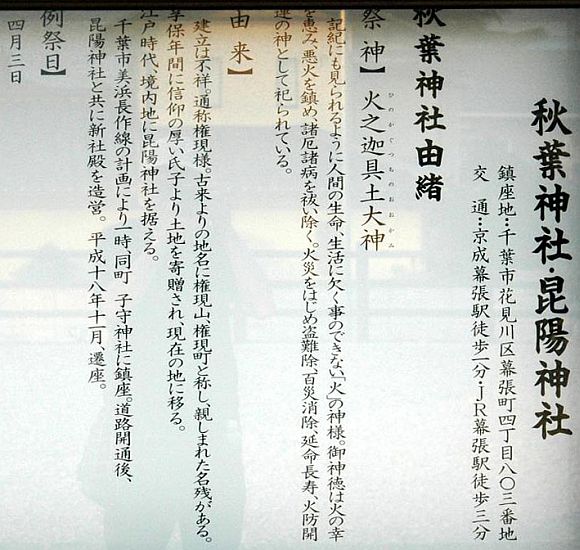 秋葉神社・昆陽神社
鎮座地：千葉市花見川区幕張町四丁目八〇三番地
交　通：京成幕張駅徒歩一分・ＪＲ幕張駅徒歩三分
秋葉神社由緒
祭神】　火之迦具土大神
ひのかぐつちのおおかみ
記紀にも見られるように人間の生命、生活に欠く事のできない「火」の神様。御神徳は火の幸
を恵み、悪火を鎮め、諸厄諸病を祓い除く。火災をはじめ盗難除、百災消除、延命長寿、火防開
運の神として祀られている。
由　来】
建立は不祥。通称権現様。古来よりの地名に権現山、権現町と称し、親しまれた名残がある。
享保年間に信仰の厚い氏子より土地を寄贈され、現在の地に移る。
江戸時代、境内地に昆陽神社を据える。
千葉市美浜長作線の計画により一時、同町　子守神社に鎮座。道路開通後、
昆陽神社と共に新社殿を造営。　平成十八年十一月、遷座。
例祭日】
四月三日